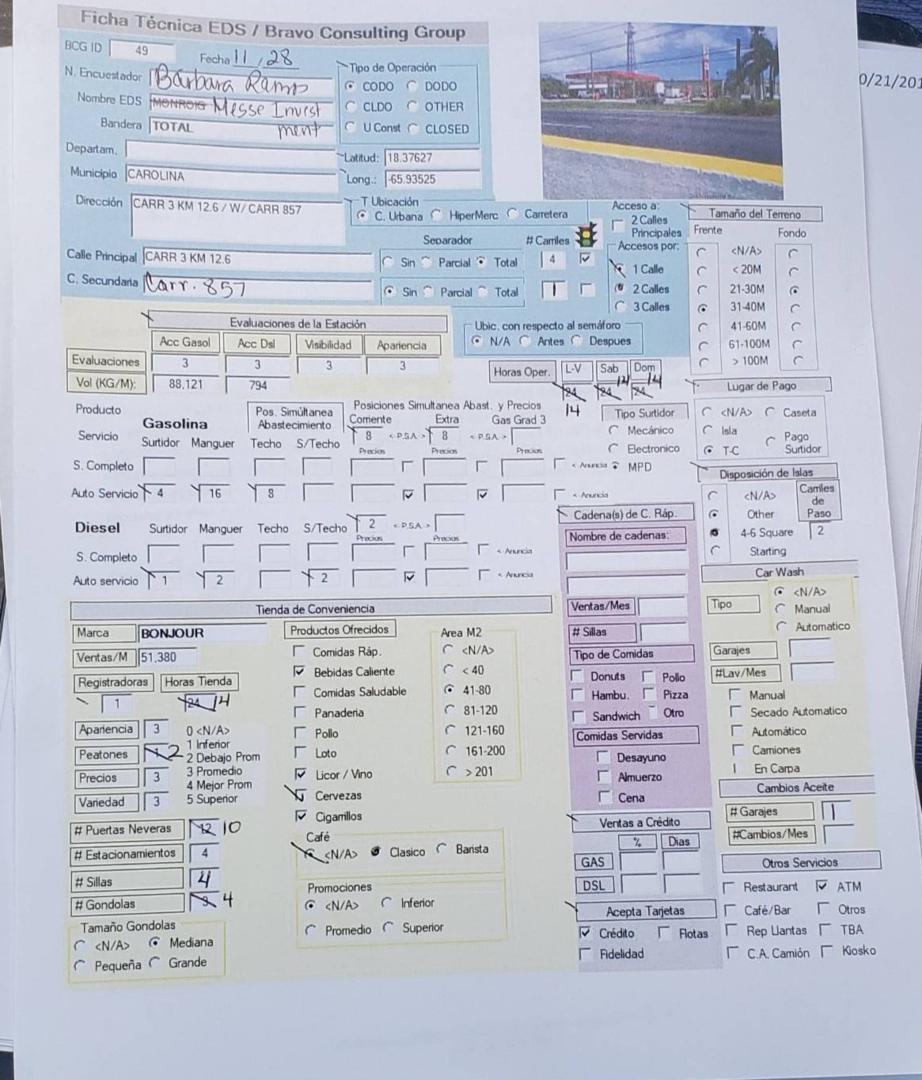 Ficha Técnica EDS / Bravo Consulting Group
BCG ID 49 Fecha 11, 28
0/21/201
N. Encuestador Bárbara Ramos
Nombre EDS MONROIG Messe Investment
Bandera TOTAL
Departam.
Municipio CAROLINA
Tipo de Operación
CODO DODO
CLDO OTHER
U Const CLOSED
Latitud: 18.37627
Long.: -65.93525
Dirección CARR 3 KM 12.6 / W/ CARR 857
T Ubicación
C. Urbana HiperMerc Carretera
Calle Principal CARR 3 KM 12.6
C. Secundaria Carr. 857
Separador # Carriles
Sin Parcial Total 4
Sin Parcial Total 1
Acceso a:
2 Calles
Principales
Accesos por:
1 Calle
2 Calles
3 Calles
Tamaño del Terreno
Frente Fondo
<N/A>
< 20M
21-30M
31-40M
41-60M
61-100M
> 100M
Evaluaciones de la Estación
Acc Gasol Acc Dsl Visibilidad Apariencia
Evaluaciones 3 3 3 3
Vol (KG/M): 88,121 794
Ubic. con respecto al semáforo
N/A Antes Despues
Horas Oper. L-V Sab Dom
24 24 24
14 14 14
Lugar de Pago
<N/A> Caseta
Isla
T-C Pago
Surtidor
Producto
Servicio
Gasolina
Surtidor Manguer
Pos. Simúltanea
Abastecimiento
Techo S/Techo
Posiciones Simultanea Abast. y Precios
Corriente Extra Gas Grad 3
8 < P.S.A. > 8 < P.S.A. >
Precios Precios Precios
S. Completo < Anuncia
Auto Servicio 4 16 8 < Anuncia
Tipo Surtidor
Mecánico
Electronico
MPD
Disposición de Islas
<N/A>
Other
4-6 Square
Starting
Carriles
de
Paso
2
Diesel Surtidor Manguer Techo S/Techo 2 < P.S.A. >
Precios Precios
S. Completo < Anuncia
Auto servicio 1 2 2 < Anuncia
Cadena(s) de C. Ráp.
Nombre de cadenas:
Ventas/Mes
# Sillas
Tipo de Comidas
Donuts Pollo
Hambu. Pizza
Sandwich Otro
Comidas Servidas
Desayuno
Almuerzo
Cena
Car Wash
Tipo <N/A>
Manual
Automatico
Garajes
#Lav/Mes
Manual
Secado Automatico
Automático
Camiones
En Carpa
Cambios Aceite
# Garajes 1
#Cambios/Mes
Tienda de Conveniencia
Marca BONJOUR
Ventas/M 51,380
Registradoras Horas Tienda
1 24 14
Apariencia 3
Peatones 2
Precios 3
Variedad 3
0 <N/A>
1 Inferior
2 Debajo Prom
3 Promedio
4 Mejor Prom
5 Superior
# Puertas Neveras 12 10
# Estacionamientos 4
# Sillas 4
# Gondolas 3 4
Tamaño Gondolas
<N/A> Mediana
Pequeña Grande
Productos Ofrecidos
Comidas Ráp.
Bebidas Caliente
Comidas Saludable
Panaderia
Pollo
Loto
Licor / Vino
Cervezas
Cigarrillos
Area M2
<N/A>
< 40
41-80
81-120
121-160
161-200
> 201
Café
<N/A> Clasico Barista
Promociones
<N/A> Inferior
Promedio Superior
Ventas a Crédito
% Dias
GAS
DSL
Acepta Tarjetas
Crédito Flotas
Fidelidad
Otros Servicios
Restaurant ATM
Café/Bar Otros
Rep Llantas TBA
C.A. Camión Kiosko